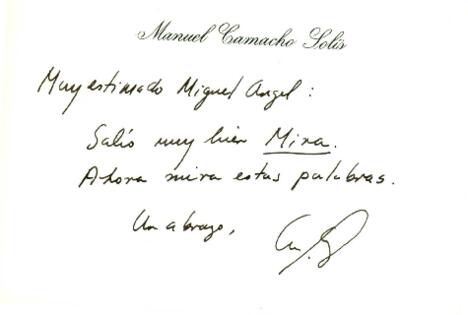 Manuel Camacho Solís
Muy estimado Miguel Angel:
Salió muy bien Mira.
Ahora mira estas palabras.
Un abrazo,